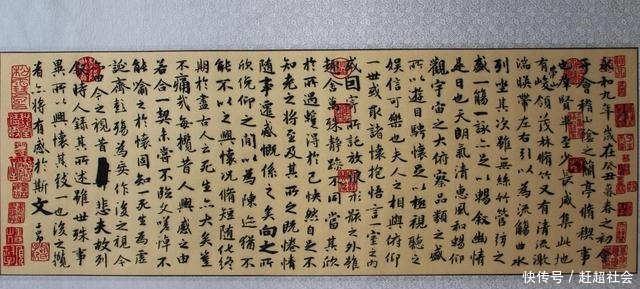 永和九年歲在癸丑暮春之初會
于會稽山陰之蘭亭脩稧事
也羣賢畢至少長咸集此地
有崇山峻領茂林脩竹又有清流激
湍暎帶左右引以為流觴曲水
列坐其次雖無絲竹管弦之
盛一觴一詠亦足以暢敘幽情
是日也天朗氣清惠風和暢仰
觀宇宙之大俯察品類之盛
所以遊目騁懷足以極視聽之
娛信可樂也夫人之相與俯仰
一世或取諸懷抱悟言一室之內
或因寄所託放浪形骸之外雖
趣舍萬殊靜躁不同當其欣
於所遇蹔得於己怏然自足不
知老之將至及其所之既惓情
隨事遷感慨係之矣向之所
欣俛仰之閒以為陳迹猶不
能不以之興懷況脩短隨化終
期於盡古人云死生亦大矣豈
不痛哉每攬昔人興感之由
若合一契未嘗不臨文嗟悼不
能喻之於懷固知一死生為虛
誕齊彭殤為妄作後之視今
亦由今之視昔悲夫故列
敘時人錄其所述雖世殊事
異所以興懷其致一也後之攬
者亦將有感於斯文
快传号 / 赶超社会